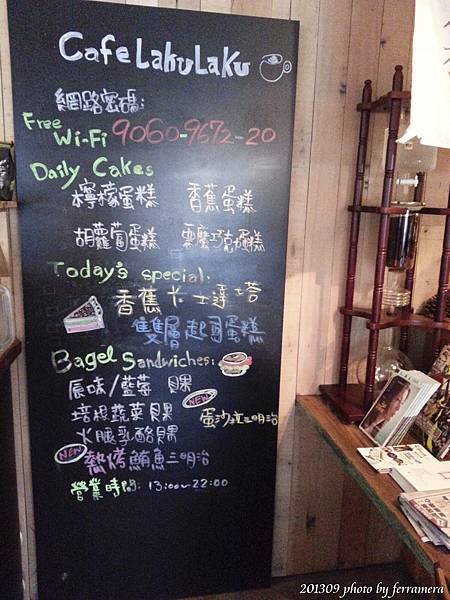 Cafe LakuLaKu
網路密碼:
Free Wi-Fi 9060-9672-20
Daily Cakes
檸檬蛋糕 香蕉蛋糕
胡蘿蔔蛋糕 栗魔巧克蛋糕
Today's special:
香蕉卡士達塔
雙層起司蛋糕
Bagel Sandwiches:
原味/藍莓 貝果
NEW
培根蔬菜貝果 蛋沙拉三明治
火腿乳酪貝果
NEW 熱烤鮪魚三明治
營業時間: 13:00~22:00
201309 photo by ferramera